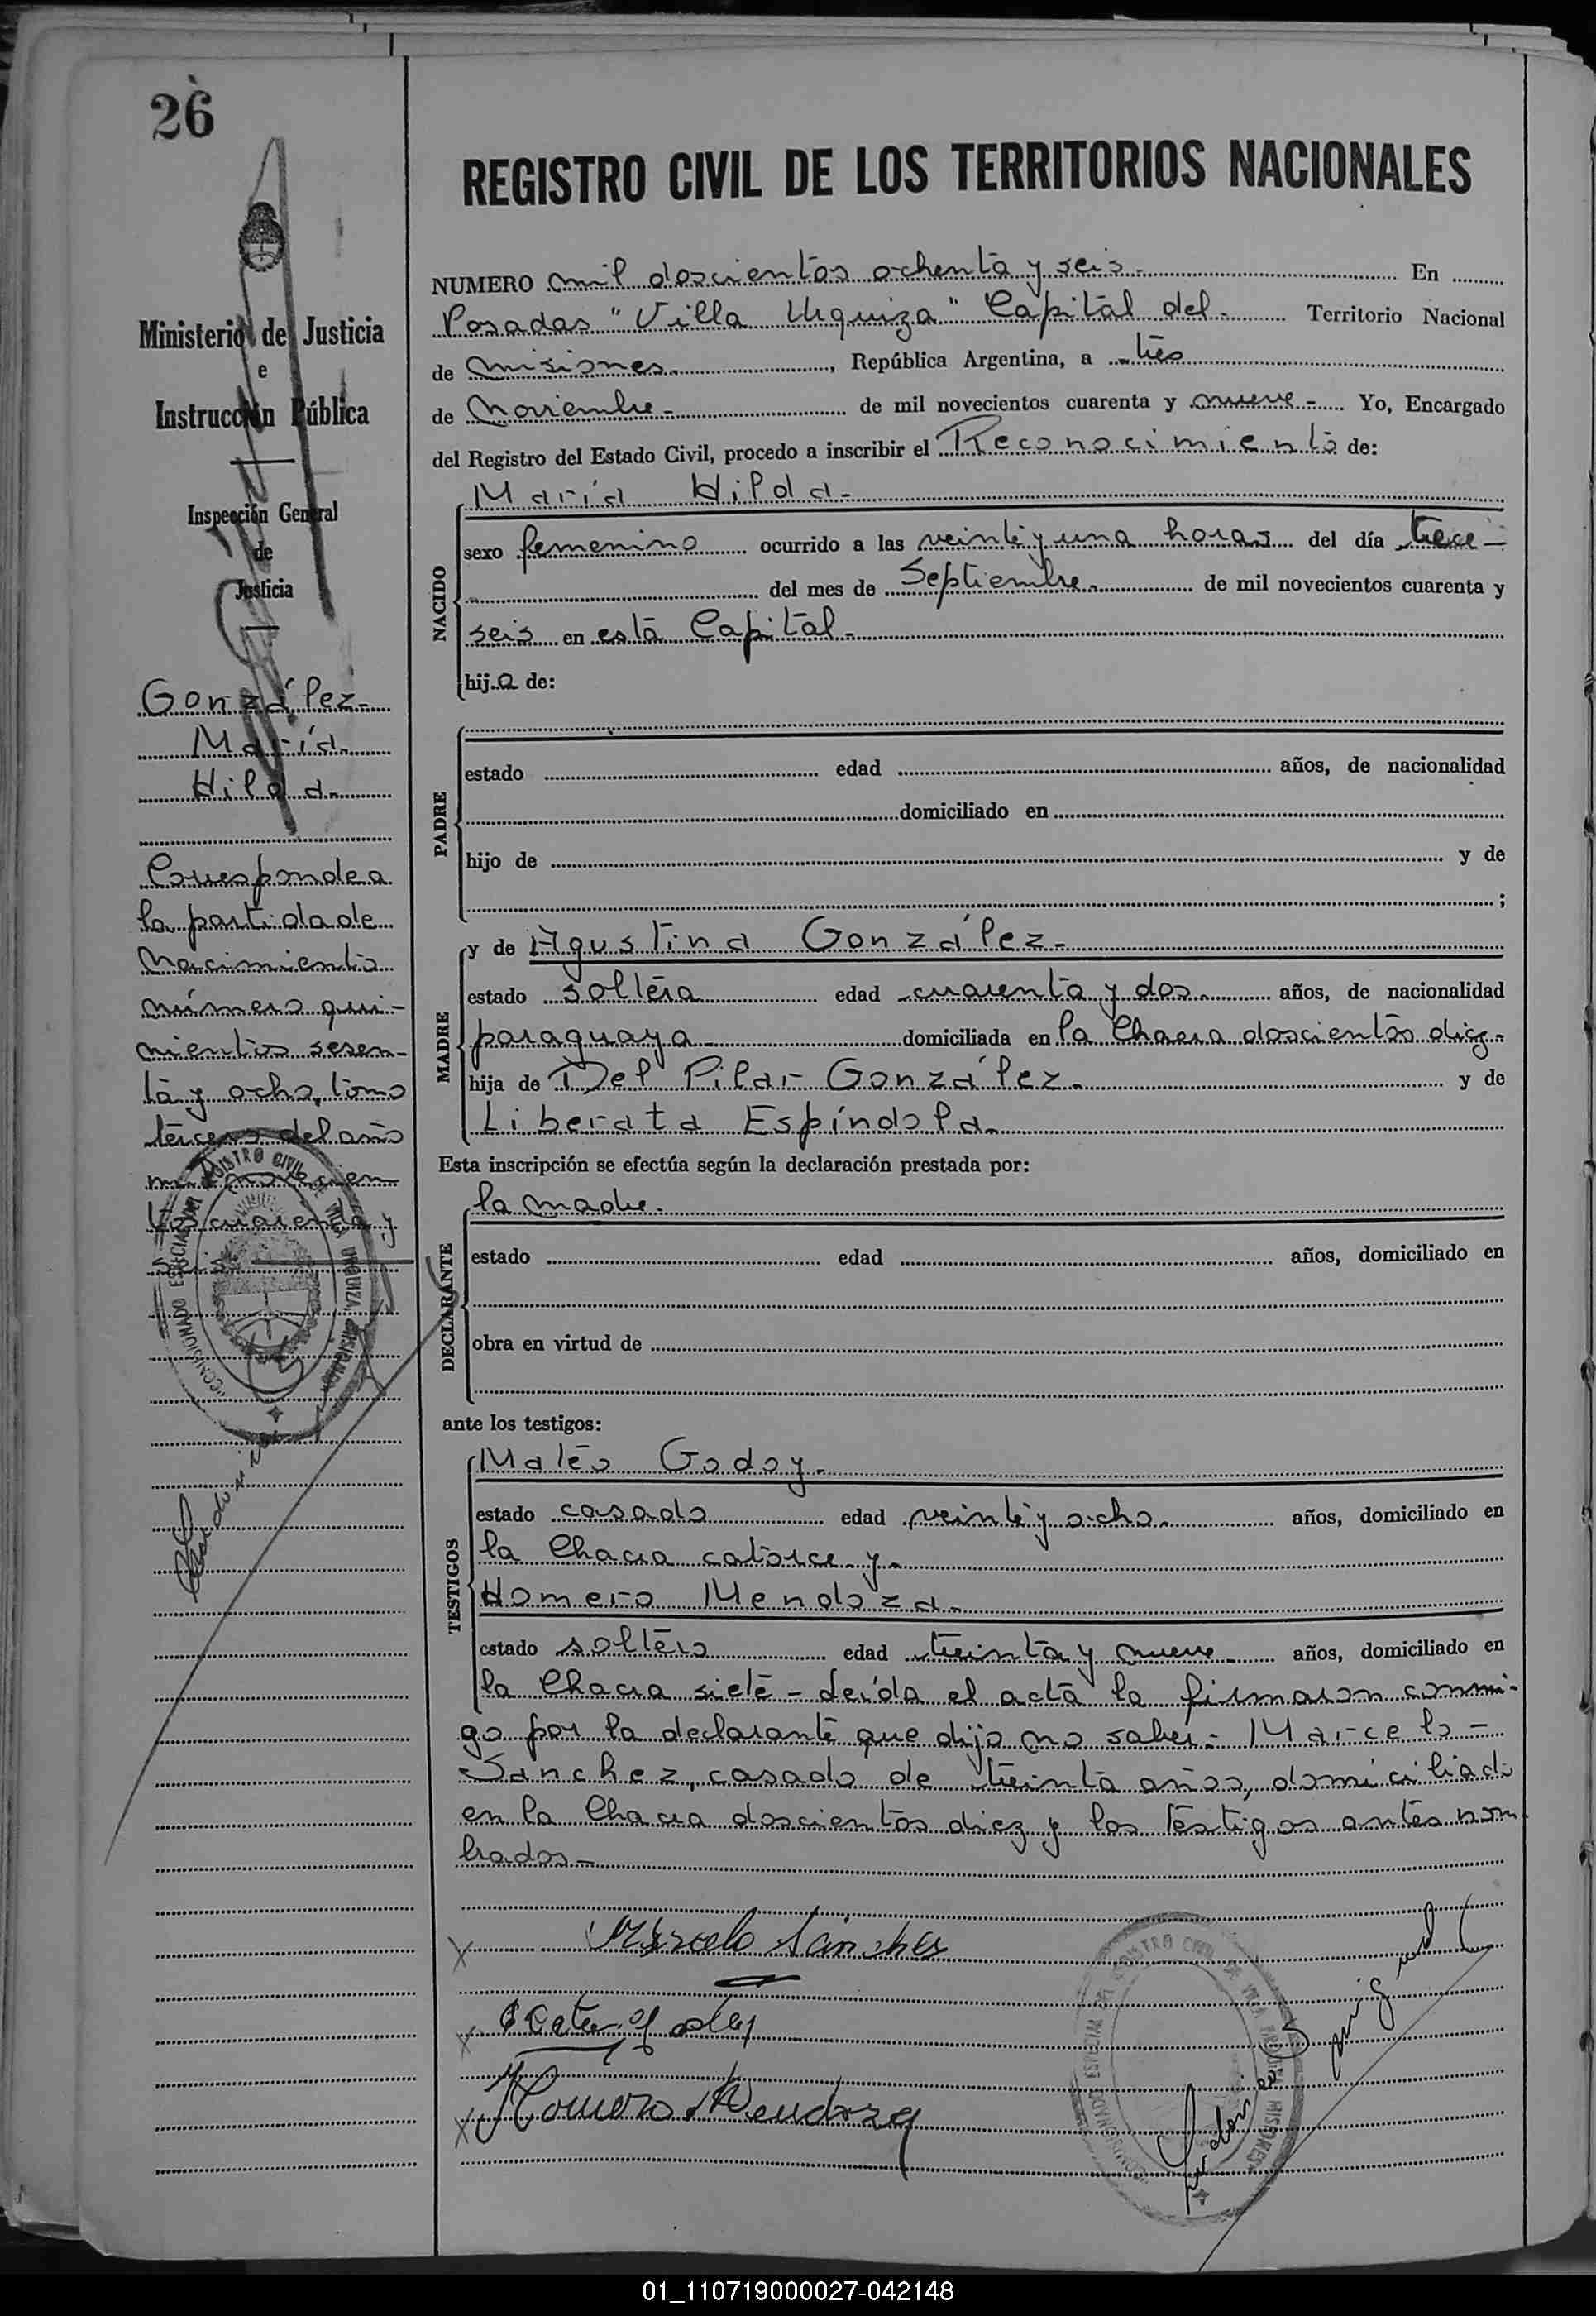 26
Ministerio de Justicia
e
Instrucción Pública
Inspección General
de
Justicia
González-
María
Hilda-
Corresponde a
la partida de
Nacimiento
número qui-
nientos sesen-
ta y ocho, tomo
tercero del año
mil novecien
tos cuarenta y
seis
REGISTRO CIVIL DE LOS TERRITORIOS NACIONALES
NUMERO mil doscientos ochenta y seis- En
Posadas "Villa Urquiza" Capital del- Territorio Nacional
de Misiones-, República Argentina, a tres
de Noviembre- de mil novecientos cuarenta y nueve- Yo, Encargado
del Registro del Estado Civil, procedo a inscribir el Reconocimiento de:
María Hilda-
NACIDO
sexo femenino ocurrido a las veinte y una horas del día trece-
del mes de Septiembre- de mil novecientos cuarenta y
seis en esta Capital-
hija de:
PADRE
estado edad años, de nacionalidad
domiciliado en
hijo de y de
;
MADRE
y de Agustina González-
estado soltera edad cuarenta y dos- años, de nacionalidad
paraguaya- domiciliada en la Chacra doscientos diez-
hija de Del Pilar González- y de
Liberata Espíndola-
Esta inscripción se efectúa según la declaración prestada por:
la madre-
DECLARANTE
estado edad años, domiciliado en
obra en virtud de
ante los testigos:
TESTIGOS
Mateo Godoy-
estado casado edad veinte y ocho- años, domiciliado en
la Chacra catorce y-
Homero Mendoza-
estado soltero edad treinta y nueve- años, domiciliado en
la Chacra siete- Leída el acta la firmaron conmi-
go por la declarante que dijo no saber- Marcelo-
Sanchez, casado de treinta años, domiciliado
en la Chacra doscientos diez y los testigos antes nom-
brados-
Marcelo Sánchez
Mateo Godoy
Homero Mendoza
01_110719000027-042148